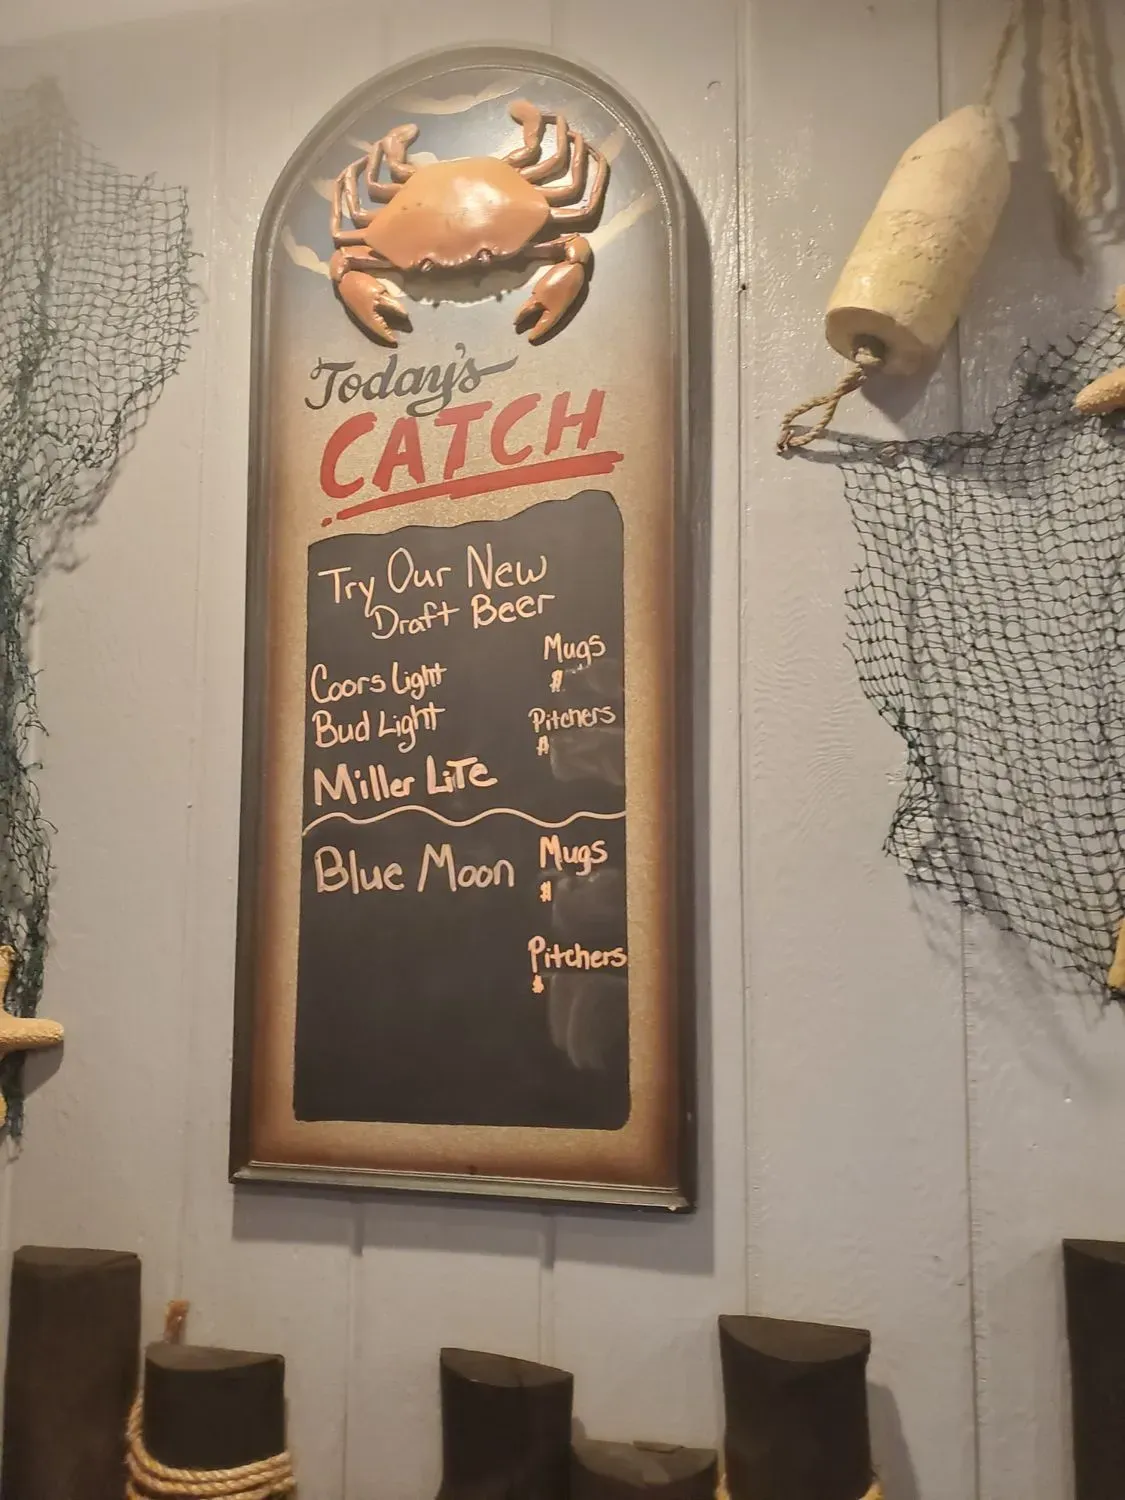 Today's
CATCH
Try Our New
Draft Beer
Mugs
$
Coors Light
Bud Light
Pitchers
$
Miller Lite
Blue Moon
Mugs
$
Pitchers
$